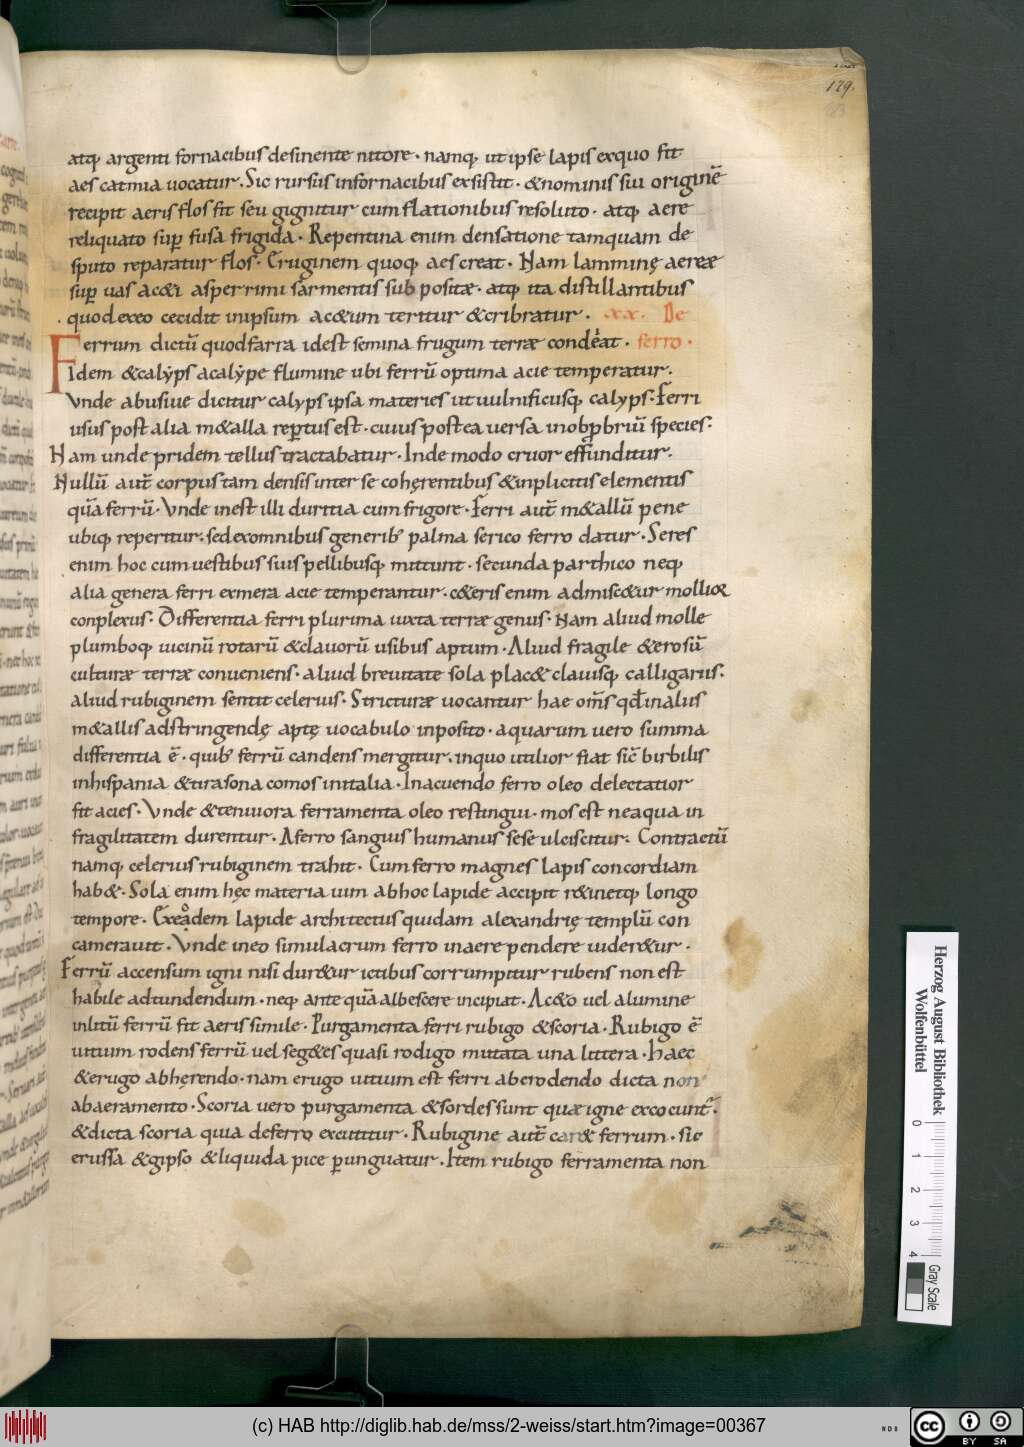 179.
atq; argenti fornacibus desinente nitore · namq; ut ipse lapis exquo fit
aes catmia uocatur. Sic rursus infornacibus exsistit · &nominis sui originē
recipit aeris flos fit seu gignitur cum flationibus resoluto · atq; aere
reliquato sup̱ fusa frigida · Repentina enim densatione tamquam de
sputo reparatur flos · Eruginem quoq; aes creat · Nam lamminę aereæ
sup̱ uas ac&i asperrimi sarmentis sub positæ · atq; ita distillantibus
· quod exeo cecidit inipsum ac&um teritur &cribratur · xx. De
Ferrum dictū quod farra idest semina frugum terræ condeat · ferro ·
Idem &calẏps acalẏpe flumine ubi ferrū optima acie temperatur.
Vnde abusiue dicitur calyps ipsa materies ut uulnificusq; calyps · Ferri
usus post alia m&alla rep̱tus est · cuius postea uersa inobp̱briū species :
Nam unde pridem tellus tractabatur · Inde modo cruor effunditur.
Nullū aut̄ corpus tam densis inter se cohęrentibus &inplicitis elementis
quā ferrū · Vnde inest illi duritia cum frigore · Ferri aut̄ m&allū pene
ubiq; reperitur: sed exomnibus generib' palma serico ferro datur · Seres
enim hoc cum uestibus suis pellibusq; mittunt · secunda parthico neq;
alia genera ferri exmera acie temperantur · c&eris enim admisc&ur mollior
conplexus · Differentia ferri plurima iuxta terræ genus · Nam aliud molle
plumboq; uicinū rotarū &clauorū usibus aptum · Aliud fragile &erosū
culturæ terræ conueniens · aliud breuitate sola plac& clauisq; calligariis ·
aliud rubiginem sentit celerius · Stricturæ uocantur hae om̄s qđ inalus
m&allis adstringendę aptę uocabulo inposito · aquarum uero summa
differentia ē · quib' ferrū candens mergitur · inquo utilior fiat sic̄ birbilis
inhispania &tirasona comos initalia · Inacuendo ferro oleo delectatior
fit acies · Vnde &tenuiora ferramenta oleo restingui · mos est neaqua in
fragilitatem durentur · Aferro sanguis humanus sese ulciscitur : Contractū
namq; celerius rubiginem trahit · Cum ferro magnes lapis concordiam
hab& · Sola enim hęc materia uim abhoc lapide accipit r&inetq; longo
tempore · Exeodem lapide architectus quidam alexandrię templū con
camerauit · Vnde ineo simulacrum ferro inaere pendere uider&ur ·
Ferrū accensum igni nisi dur&ur ictibus corrumpitur rubens non est
habile adtundendum · neq; ante quā albescere incipiat · Ac&o uel alumine
inlitū ferrū fit aeris simile · Purgamenta ferri rubigo &scoria · Rubigo ē
uitium rodens ferrū uel seg&es quasi rodigo mutata una littera · haec
&erugo abhęrendo · nam erugo uitium est ferri aberodendo dicta non
abaeramento · Scoria uero purgamenta &sordes sunt quæ igne excocunt̄ ·
&dicta scoria quia deferro excutitur · Rubigine aut̄ car& ferrum · sic
erussa &gipso &liquida pice p̱unguatur · Item rubigo ferramenta non
Herzog August Bibliothek
Wolfenbüttel
0 1 2 3 4
Gray Scale
(c) HAB http://diglib.hab.de/mss/2-weiss/start.htm?image=00367
cc BY SA